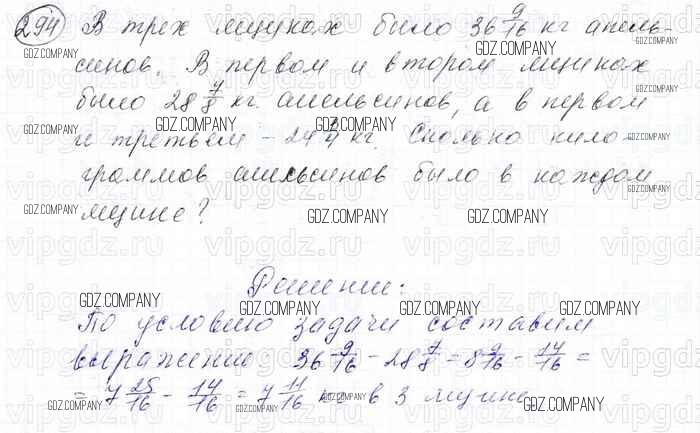 294 В трех ящиках было 36 9/16 кг апель-
синов. В первом и втором ящиках
было 28 7/8 кг. апельсинов, а в первом
и третьем - 24 кг. Сколько кило-
граммов апельсинов было в каждом
ящике?
Решение:
По условию задачи составим
выражение 36 9/16 - 28 7/8 = 8 9/16 - 14/16 =
= 7 25/16 - 14/16 = 7 11/16 кг в 3 ящике
GDZ.COMPANY
vipgdz.ru